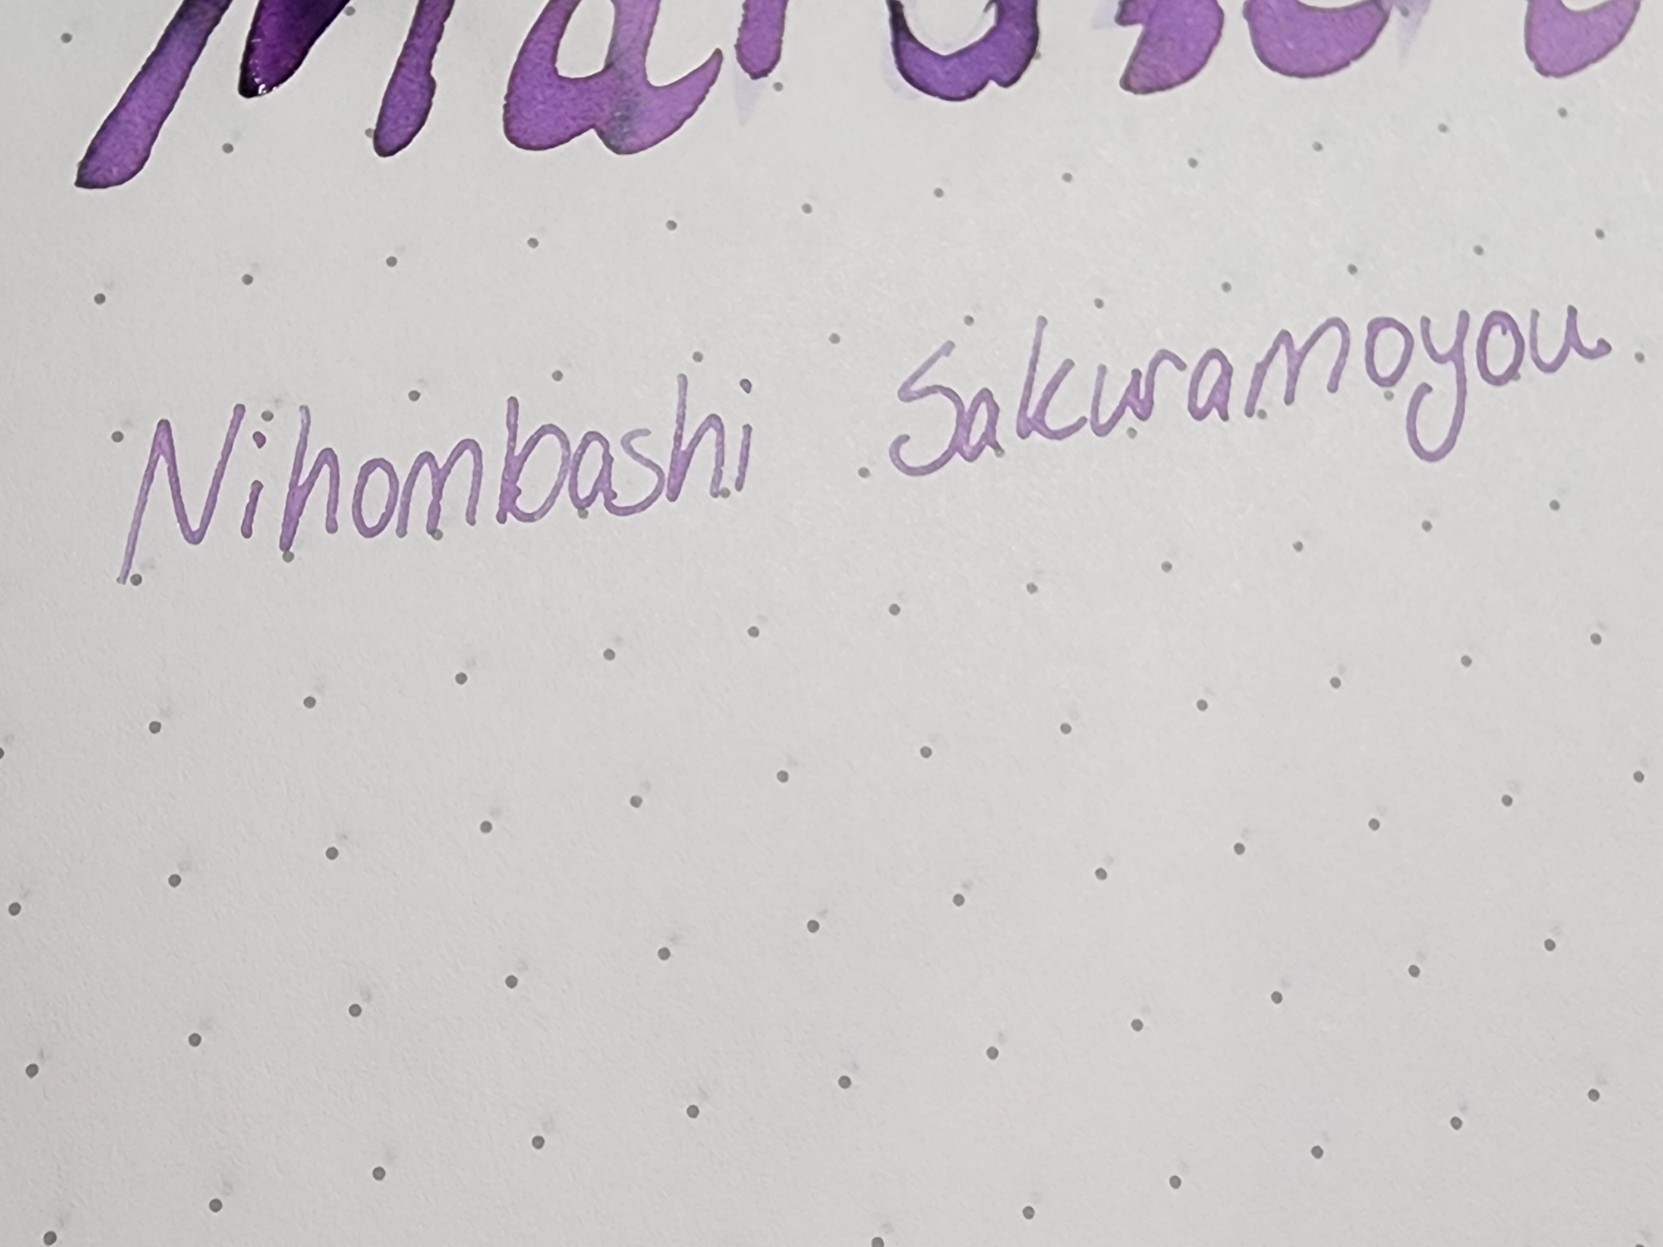 Nihombashi Sakuramoyou